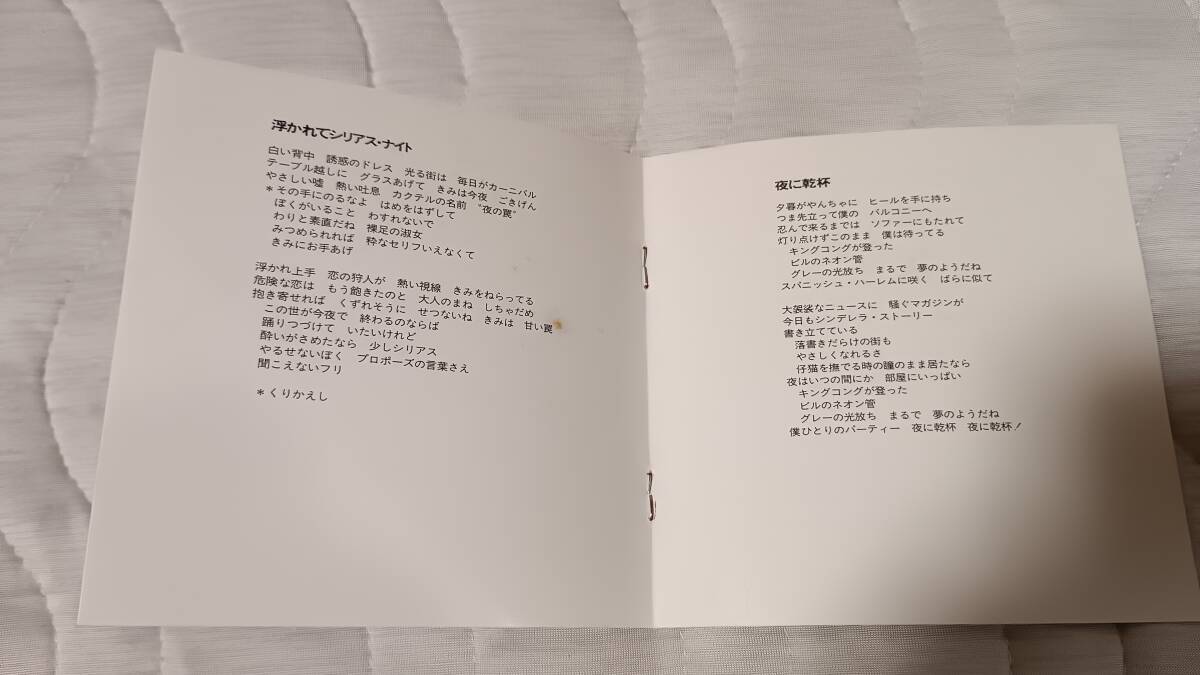 浮かれてシリアス・ナイト
白い背中　誘惑のドレス　光る街は　毎日がカーニバル
テーブル越しに　グラスあげて　きみは今夜　ごきげん
やさしい嘘　熱い吐息　カクテルの名前　“夜の罠”
＊その手にのるなよ　はめをはずして
ぼくがいること　わすれないで
わりと素直だね　裸足の淑女
みつめられれば　粋なセリフいえなくて
きみにお手あげ
浮かれ上手　恋の狩人が　熱い視線　きみをねらってる
危険な恋は　もう飽きたのと　大人のまね　しちゃだめ
抱き寄せれば　くずれそうに　せつないね　きみは　甘い罠
この世が今夜で　終わるのならば
踊りつづけて　いたいけれど
酔いがさめたなら　少しシリアス
やるせないぼく　プロポーズの言葉さえ
聞こえないフリ
＊くりかえし
夜に乾杯
夕暮がやんちゃに　ヒールを手に持ち
つま先立って僕の　バルコニーへ
忍んで来るまでは　ソファーにもたれて
灯り点けずこのまま　僕は待ってる
キングコングが登った
ビルのネオン管
グレーの光放ち　まるで　夢のようだね
スパニッシュ・ハーレムに咲く　ばらに似て
大袈裟なニュースに　騒ぐマガジンが
今日もシンデレラ・ストーリー
書き立てている
落書きだらけの街も
やさしくなれるさ
仔猫を撫でる時の瞳のまま居たなら
夜はいつの間にか　部屋にいっぱい
キングコングが登った
ビルのネオン管
グレーの光放ち　まるで　夢のようだね
僕ひとりのパーティー　夜に乾杯　夜に乾杯！